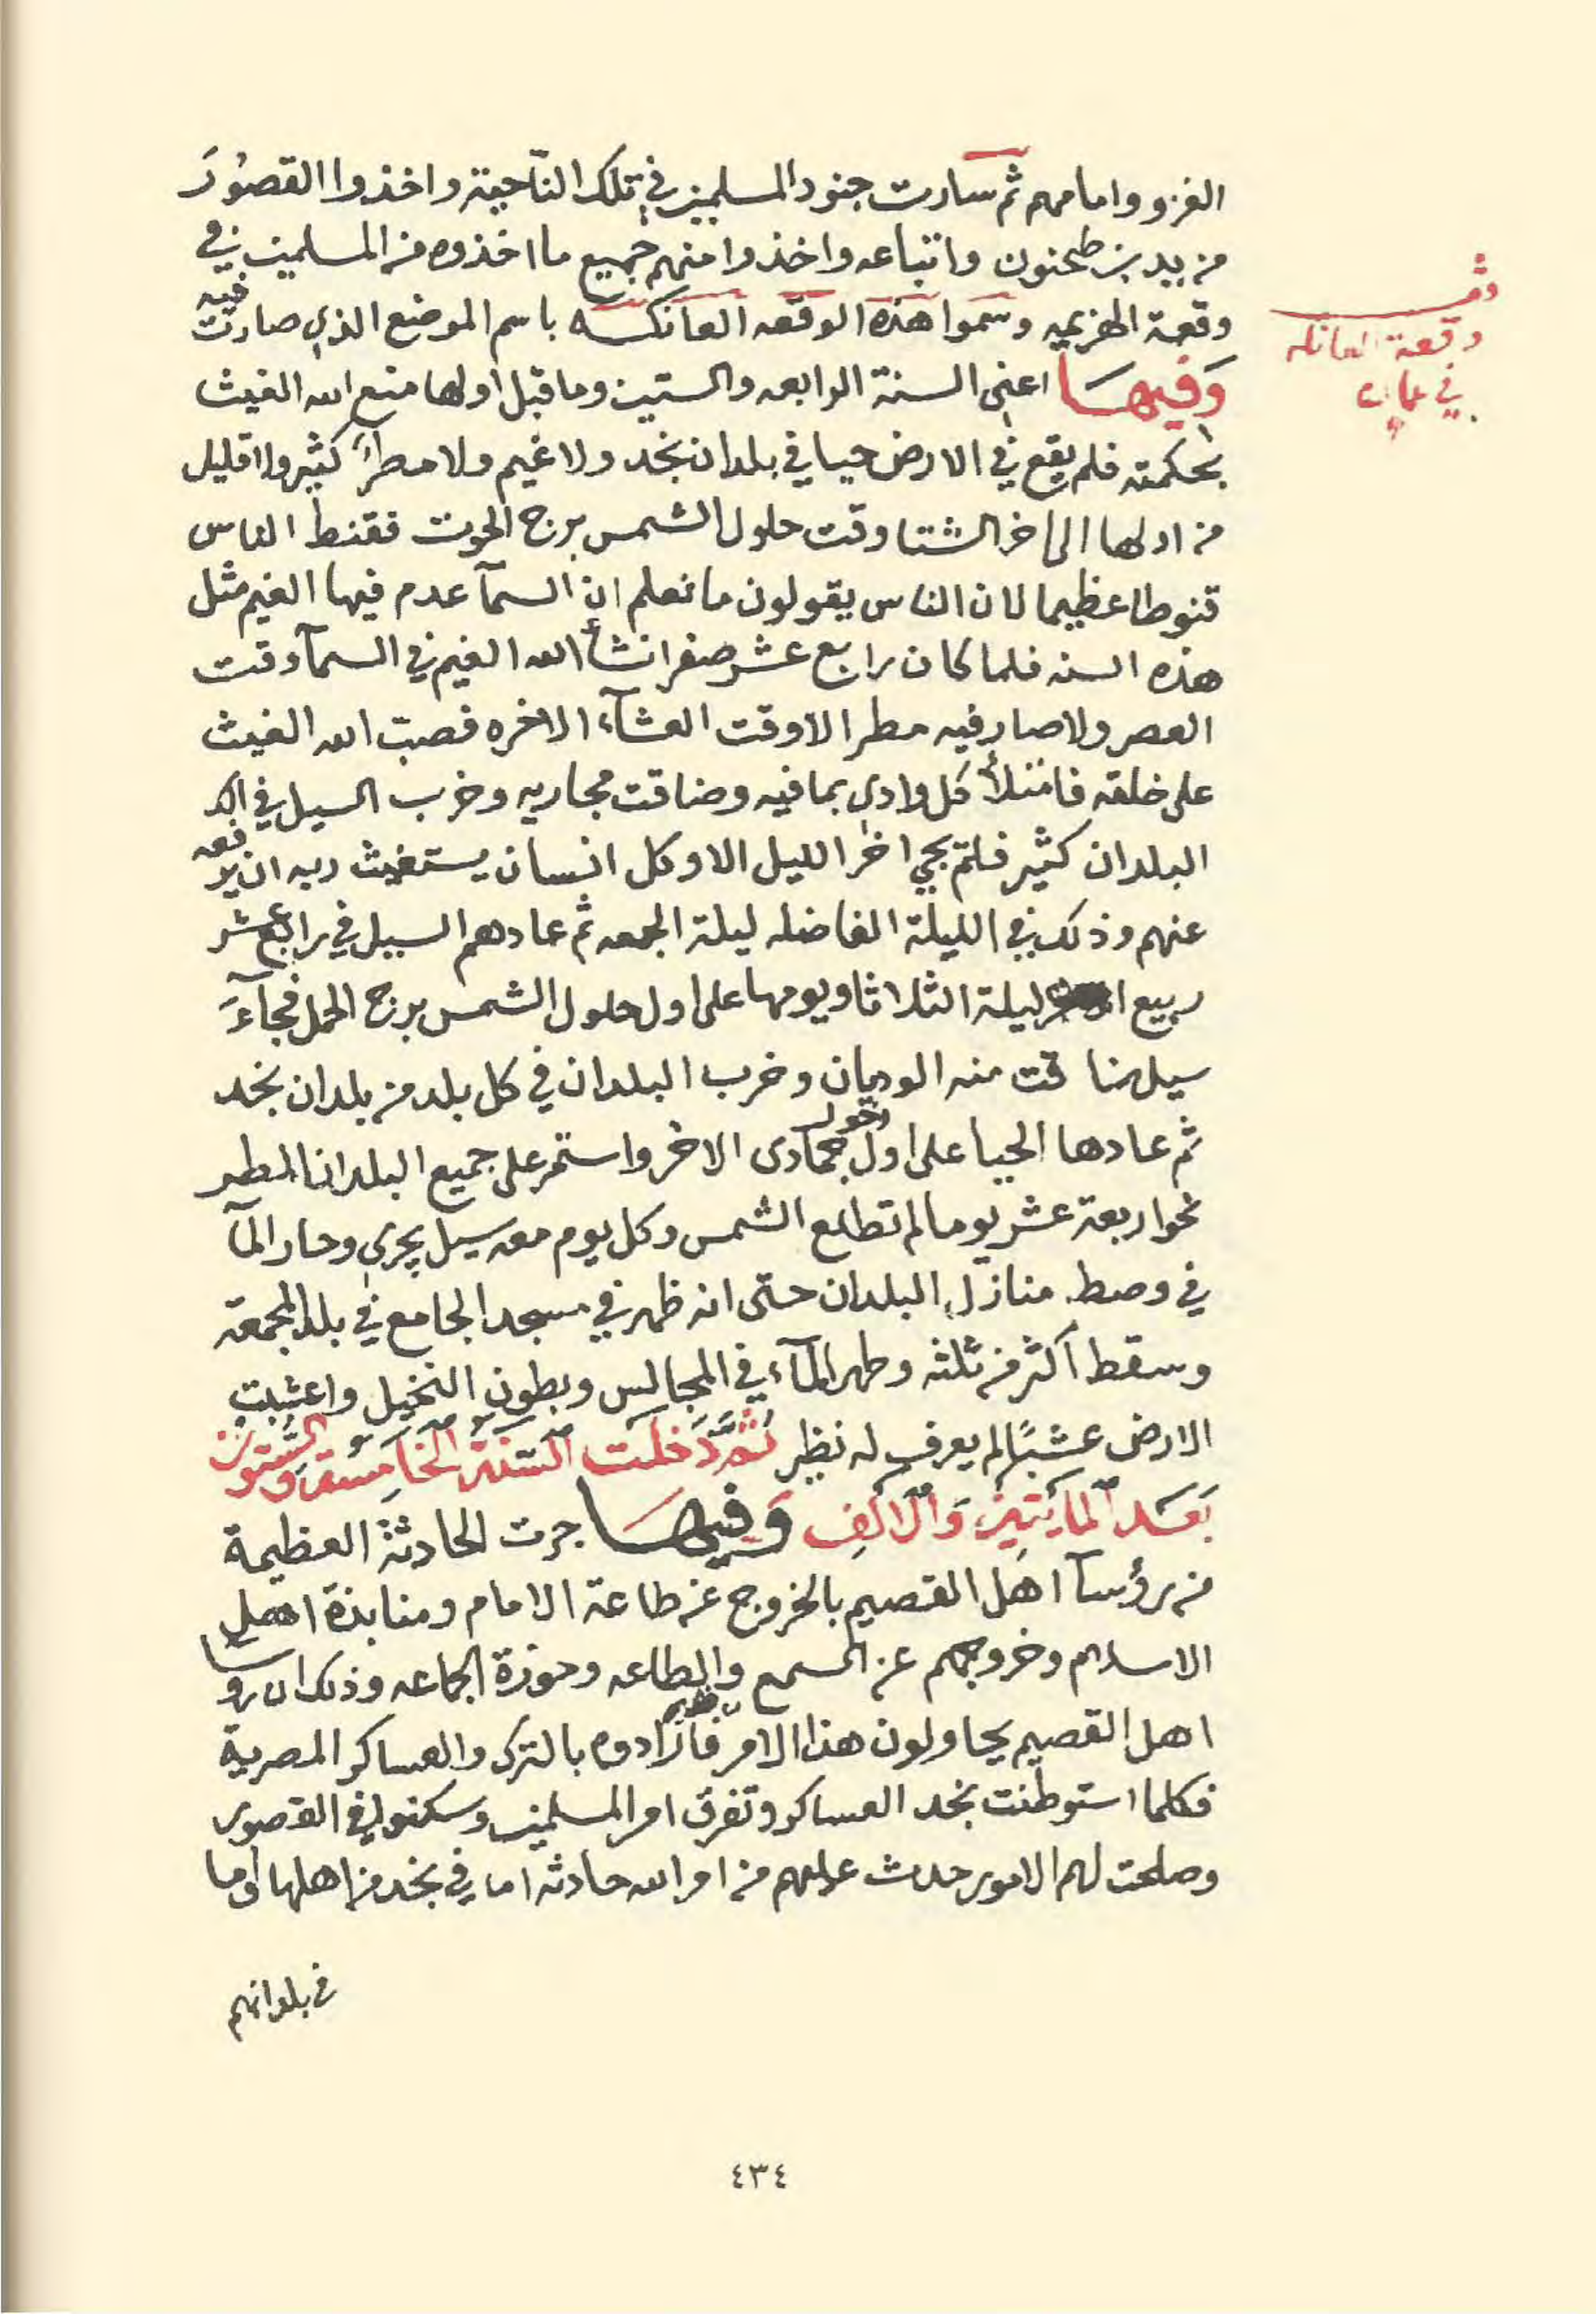 الغزو وامامهم ثم سارت جنود المسلمين في تلك الناحية واخذوا القصُورَ
من يد بن طحنون واتباعه واخذوا منهم جميع ما اخذوه من المسلمين في
وقعة الهزيمه وسموا هذه الوقعه العانكه باسم الموضع الذي صارت فيه
وقعة العانكه
في عمان
وَفيهَا اعني السنة الرابعه والستين وما قبل اولها منع الله الغيث
بحكمته فلم يقع في الارض حيا في بلدان نجد ولا غيم ولا مطرًا كثير ولا قليل
من اولها الى اخر الشتا وقت حلول الشمس برج الحوت فقنط الناس
قنوطا عظيما لان الناس يقولون ما نعلم ان السمآ عدم فيها الغيم مثل
هذه السنه فلما كان رابع عشر صفر انشأ الله الغيم في السمآ وقت
العصر ولا صار فيه مطر الا وقت العشآء الاخره فصب الله الغيث
على خلقه فامتلأ كل وادي بما فيه وضاقت مجاريه وخرب السيل في
البلدان كثير فلم يجي اخر الليل الا وكل انسان يستغيث ربه ان يرفعه
عنهم وذلك في الليلة الفاضله ليلة الجمعه ثم عادهم السيل في رابع عشر
ربيع ليلة الثلاثا ويومها على اول حلول الشمس برج الحمل فجآءَ
سيل ضاقت منه الوديان وخرب البلدان في كل بلد من بلدان نجد
ثم عادها الحيا على اول دخول جمادى الاخر واستمر على جميع البلدان المطر
نحو اربعة عشر يوما لم تطلع الشمس وكل يوم معه سيل يجري وحار المآ
في وصط منازل البلدان حتى انه ظهر في مسجد الجامع في بلد المجمعة
وسقط اكثر من ثلثه وظهر المآء في المجالس وبطون النخيل واعشبت
الارض عشبًا لم يعرف له نظير ثمَّ دَخلَت السَّنَة الخَامِسَة وَالسِّتون
بَعَد المايَتين وَالالفِ وَفيهَا جرت الحادثة العظيمة
من رؤسآ اهل القصيم بالخروج عن طاعة الامام ومنابذة اهل
الاسلام وخروجهم عن السمع والطاعه وحوزة الجماعه وذلك ان روسا
اهل القصيم يحاولون هذا الامر بالترك والعساكر المصرية
فكلما استوطنت نجد العساكر وتفرق امر المسلمين وسكنوا في القصور
وصلحت لهم الامور حدث عليهم من امر الله حادثه اما في نجد من اهلها واما
في بلدانهم
٤٣٤